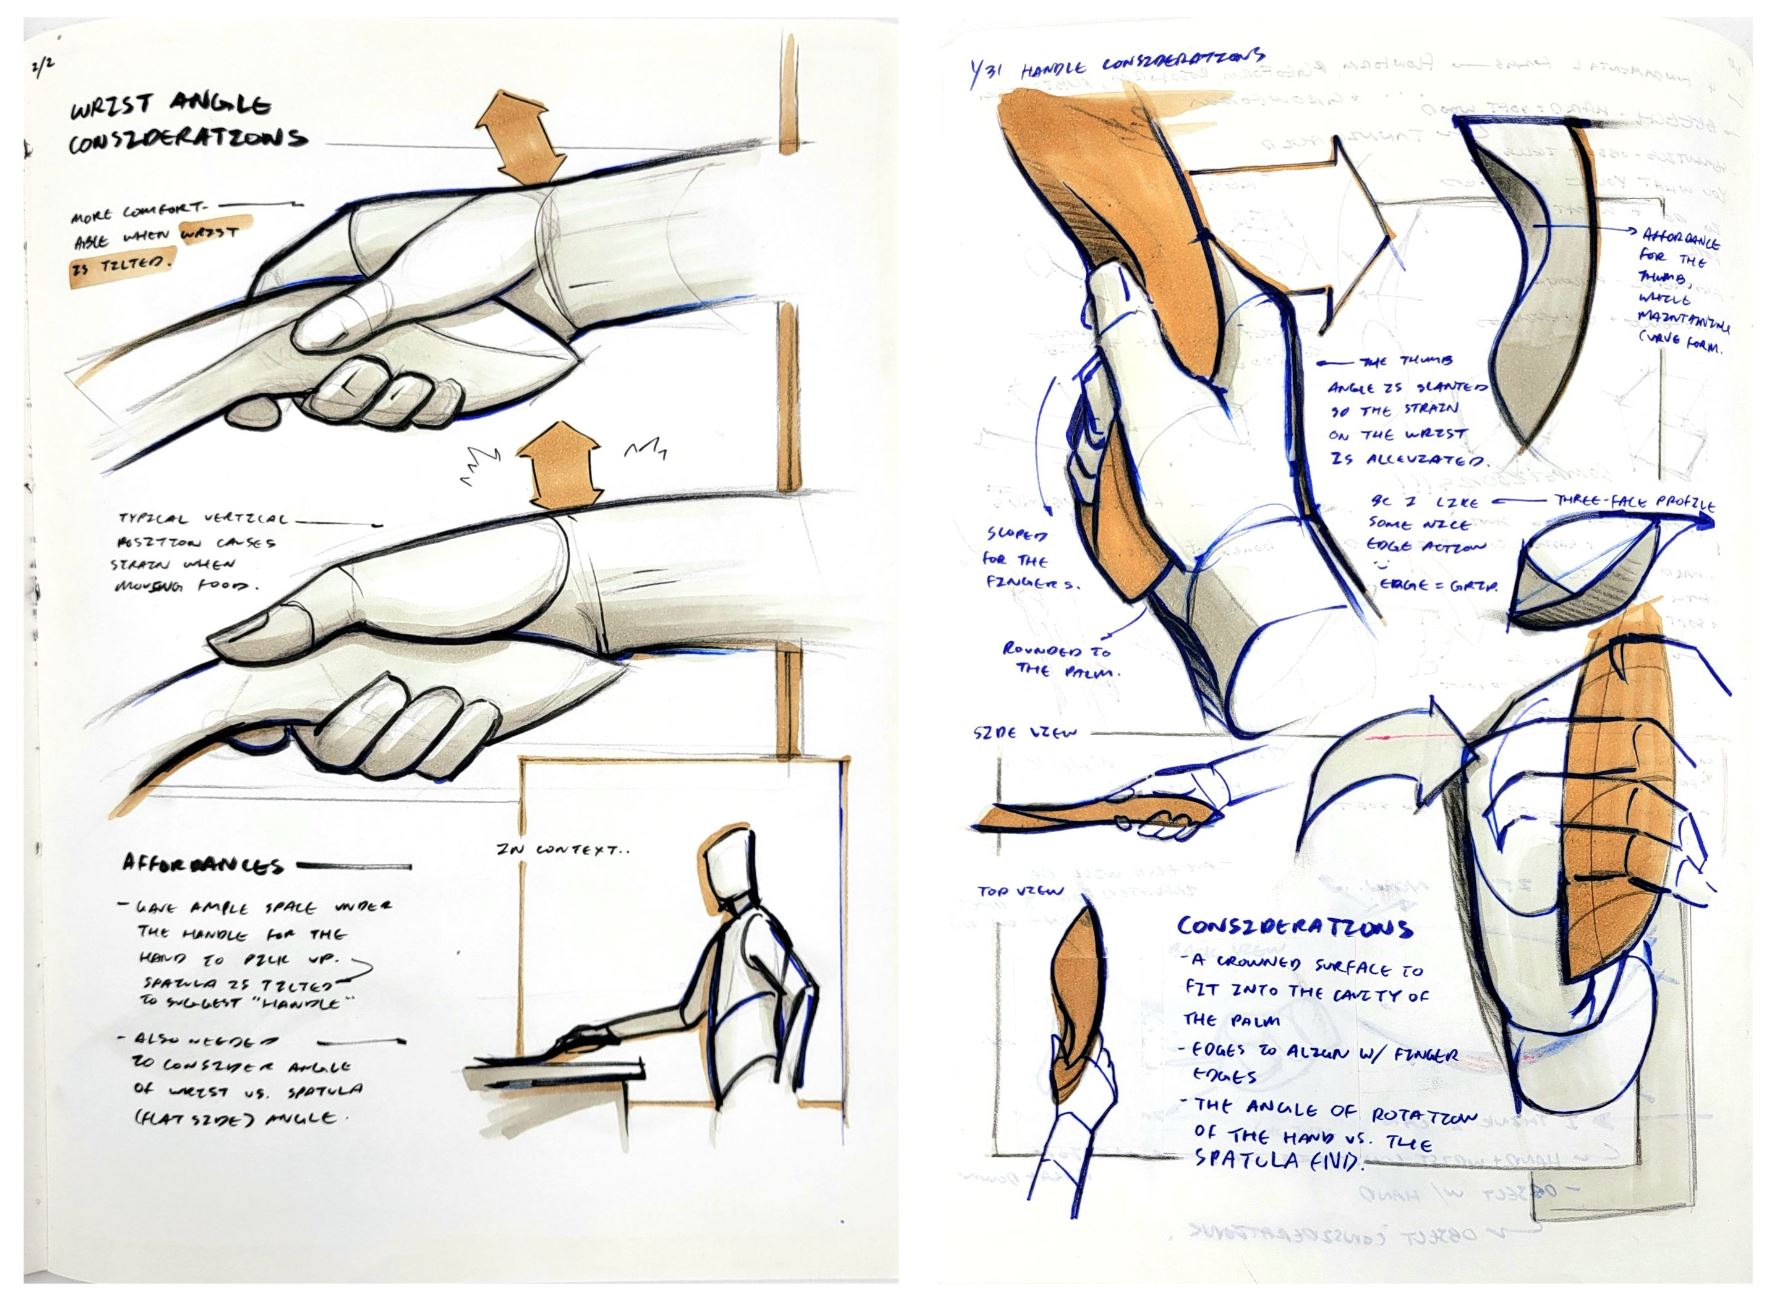 2/2
WRIST ANGLE
CONSIDERATIONS
MORE COMFORT-
ABLE WHEN WRIST
IS TILTED.
TYPICAL VERTICAL
POSITION CAUSES
STRAIN WHEN
MOVING FOOD.
AFFORDANCES
- GAVE AMPLE SPACE UNDER
THE HANDLE FOR THE
HAND TO PICK UP.
SPATULA IS TILTED
TO SUGGEST "HANDLE"
- ALSO NEEDED
TO CONSIDER ANGLE
OF WRIST VS. SPATULA
(FLAT SIDE) ANGLE.
IN CONTEXT..
1/31 HANDLE CONSIDERATIONS
AFFORDANCE
FOR THE
THUMB,
WHILE
MAINTAINING
CURVE FORM.
THE THUMB
ANGLE IS SLANTED
SO THE STRAIN
ON THE WRIST
IS ALLEVIATED.
SLOPED
FOR THE
FINGERS.
THREE-FACE PROFILE
BC I LIKE
SOME NICE
EDGE ACTION
EDGE = GRIP.
ROUNDED TO
THE PALM.
SIDE VIEW
TOP VIEW
CONSIDERATIONS
- A CROWNED SURFACE TO
FIT INTO THE CAVITY OF
THE PALM
- EDGES TO ALIGN W/ FINGER
EDGES
- THE ANGLE OF ROTATION
OF THE HAND VS. THE
SPATULA END.